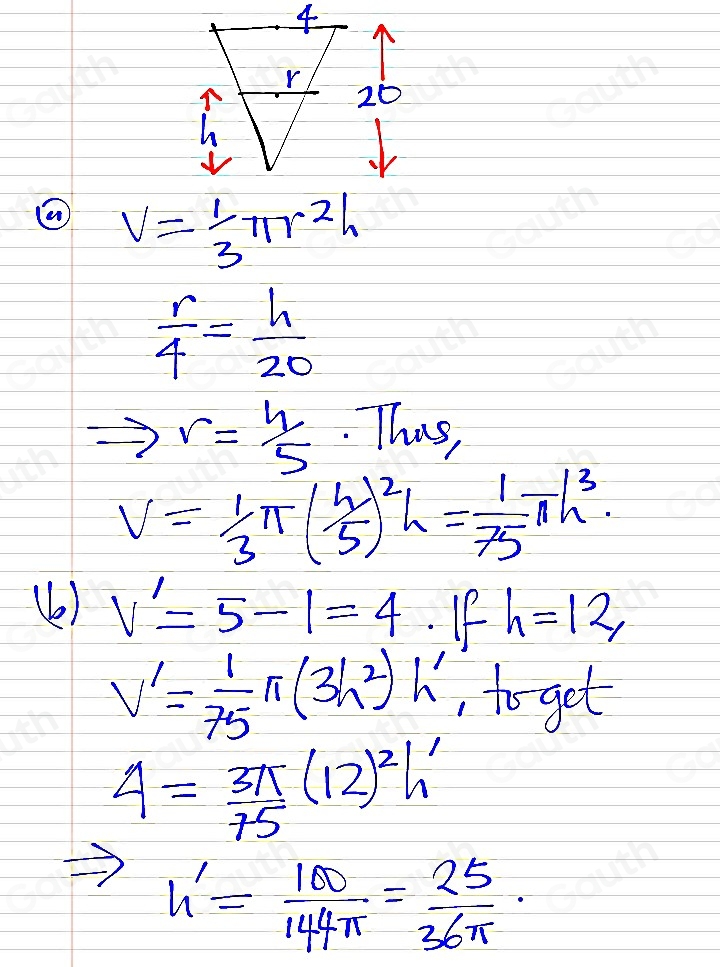 4
r
20
h
(a) V = 1/3 πr²h
r/4 = h/20
⟹ r = h/5 . Thus,
V = 1/3 π (h/5)² h = 1/75 πh³.
(b) V' = 5 - 1 = 4 . If h = 12,
V' = 1/75 π (3h²) h', to get
4 = 3π/75 (12)² h'
⟹ h' = 100/144π = 25/36π .
Gauth